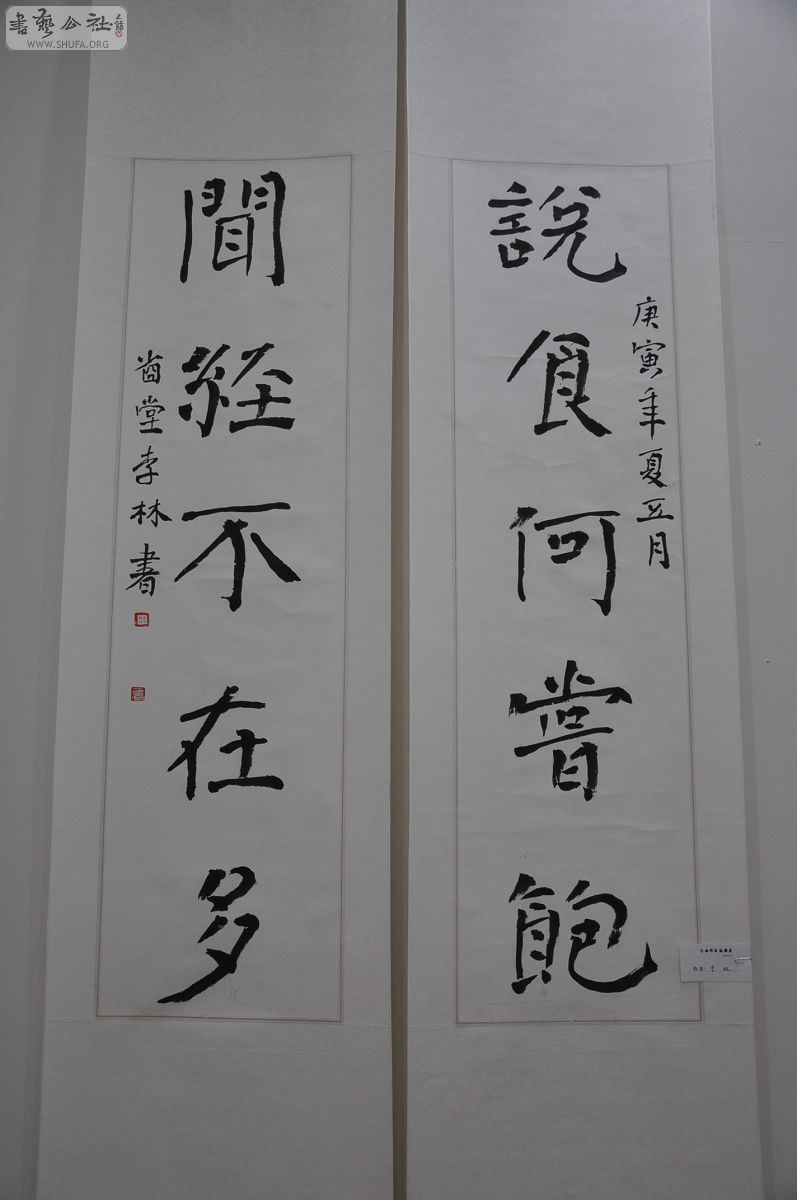 書藝公社
WWW.SHUFA.ORG
說食何嘗飽
庚寅年夏五月
聞經不在多
堂李林書
作者：李林